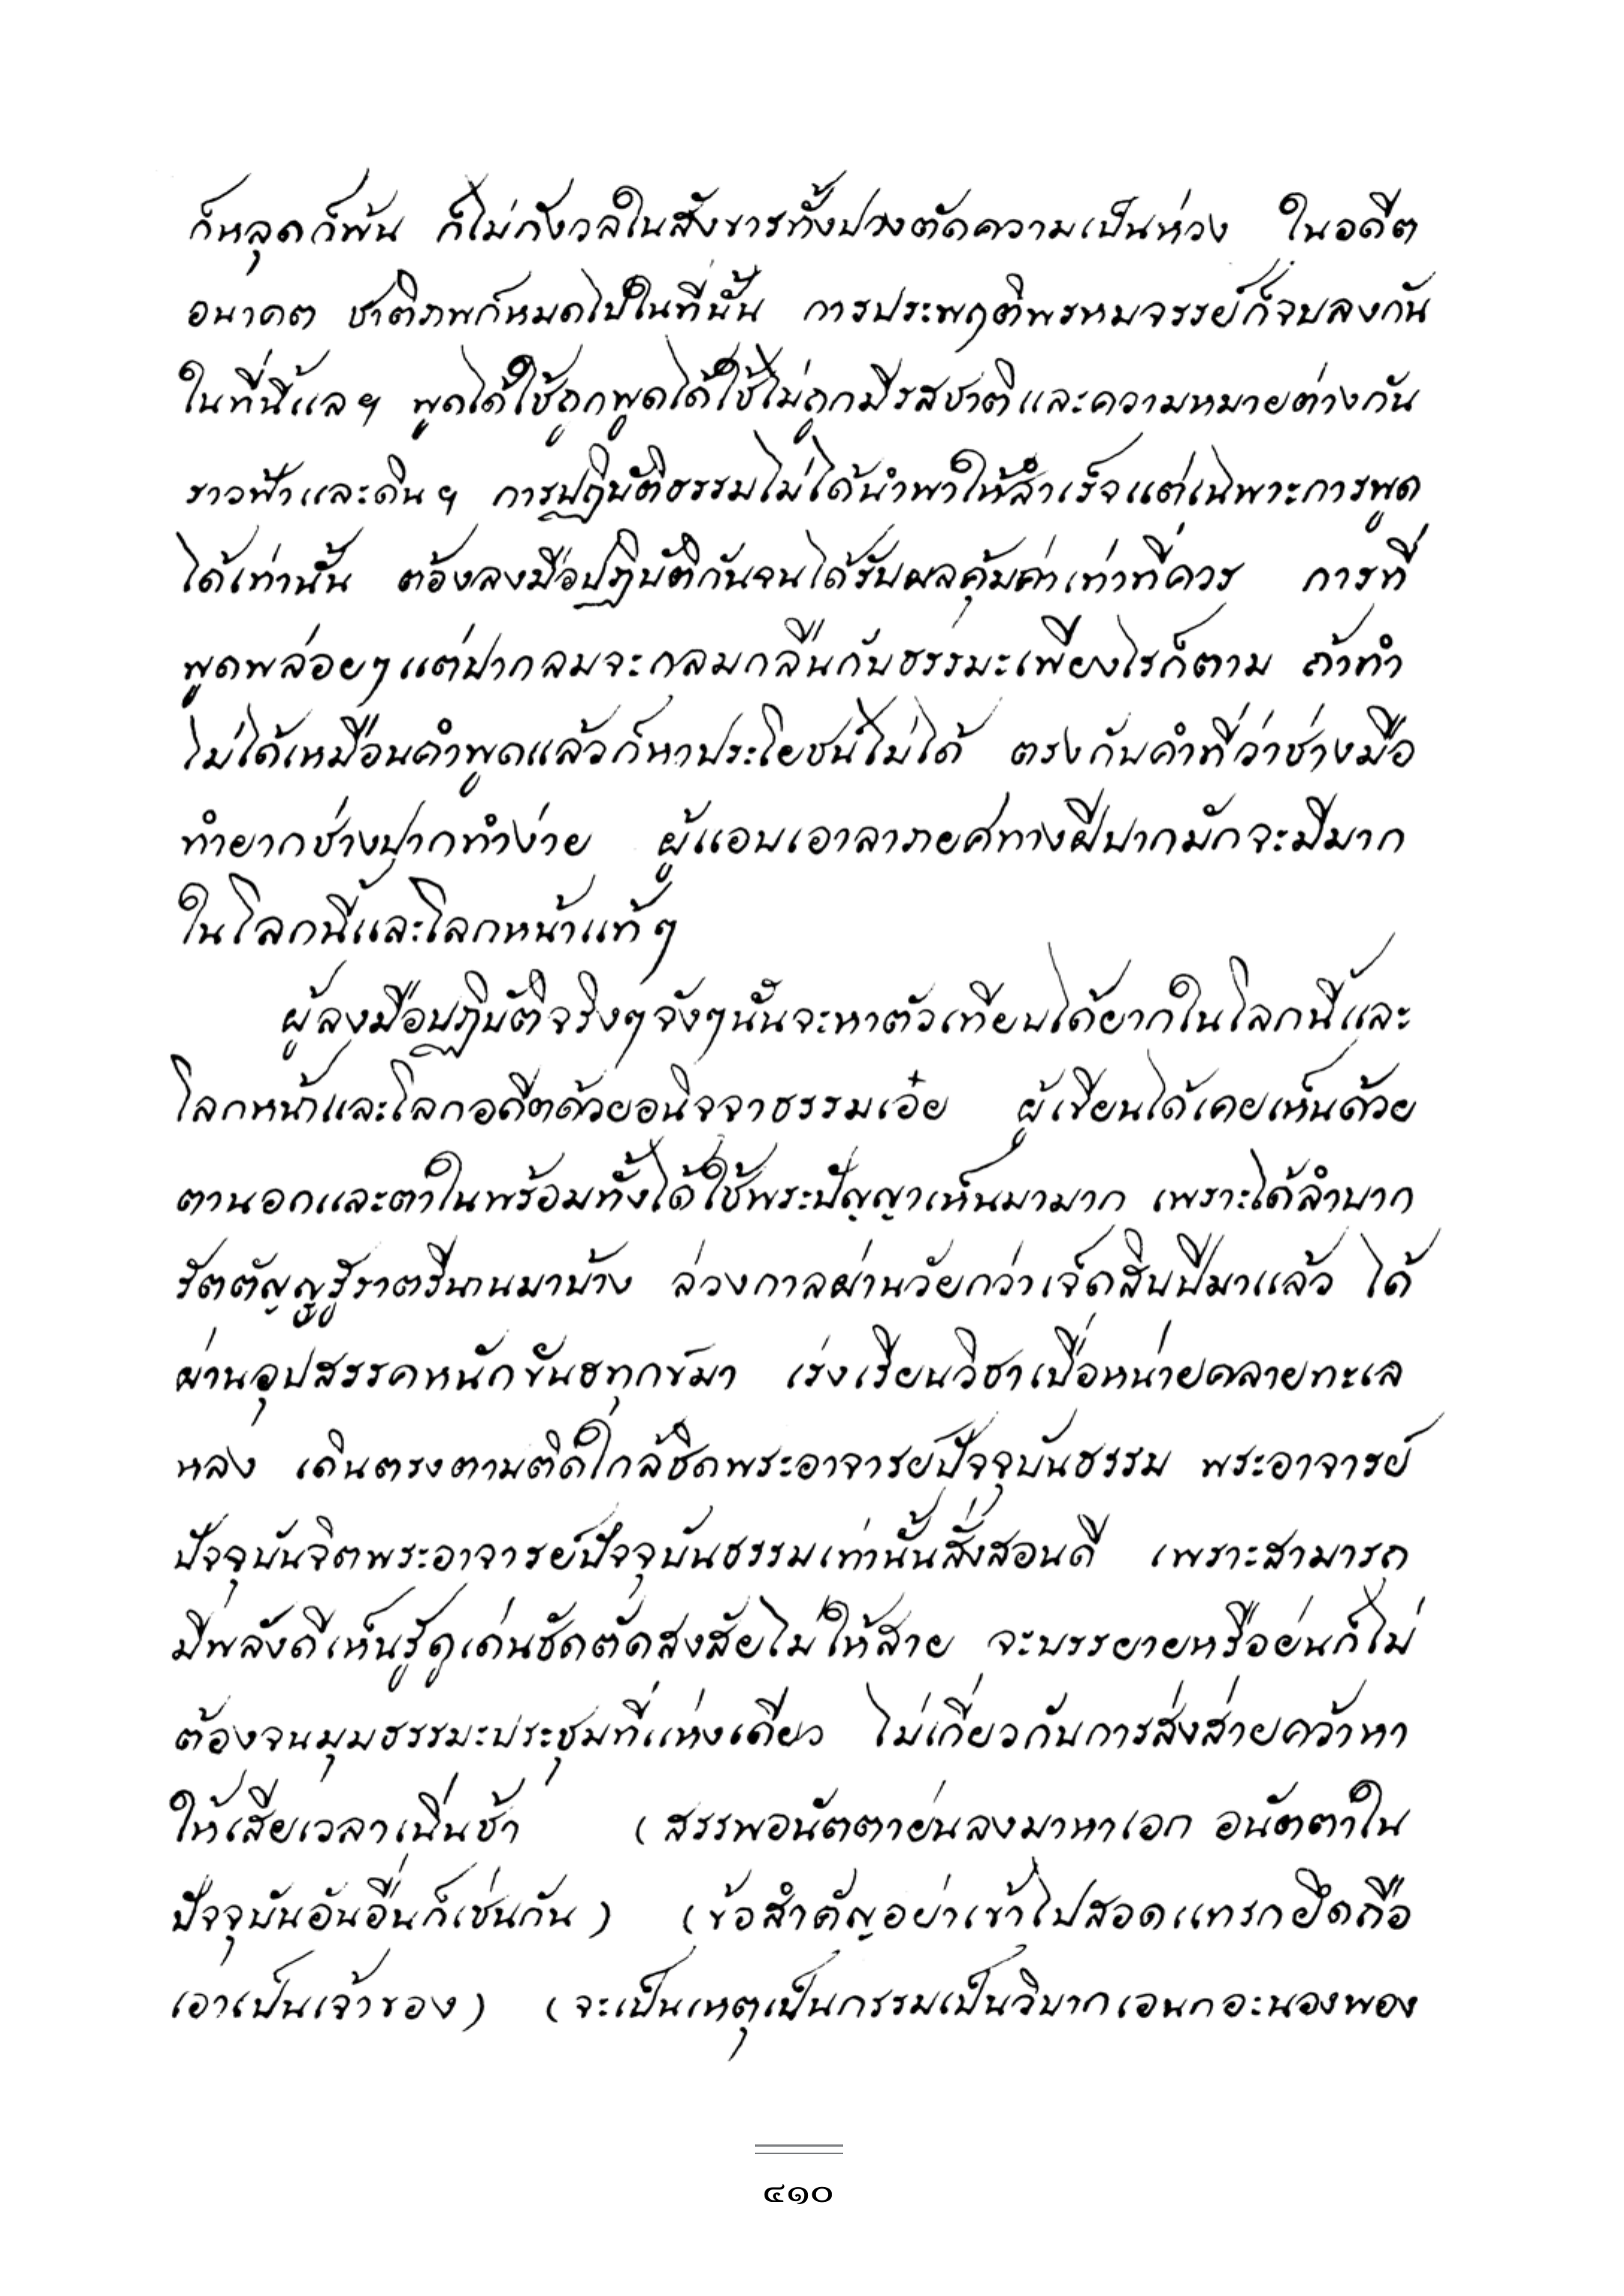 ก็หลุดก็พ้น ก็ไม่กังวลในสังขารทั้งปวงตัดความเป็นห่วง ในอดีต
อนาคต ชาติภพก็หมดไปในที่นั้น การประพฤติพรหมจรรย์ก็จบลงกัน
ในที่นี้แล ฯ พูดได้ใช้ถูกพูดได้ใช้ไม่ถูกมีรสชาติและความหมายต่างกัน
ราวฟ้าและดิน ฯ การปฏิบัติธรรมไม่ได้นำพาให้สำเร็จแต่เฉพาะการพูด
ได้เท่านั้น ต้องลงมือปฏิบัติกันจนได้รับผลคุ้มค่าเท่าที่ควร การที่
พูดพล่อยๆ แต่ปากลมจะกลมกลืนกับธรรมะเพียงไรก็ตาม ถ้าทำ
ไม่ได้เหมือนคำพูดแล้วก็หาประโยชน์ไม่ได้ ตรงกับคำที่ว่าช่างมือ
ทำยากช่างปากทำง่าย ผู้แอบเอาลาภยศทางฝีปากมักจะมีมาก
ในโลกนี้และโลกหน้าแท้ๆ
ผู้ลงมือปฏิบัติจริงๆจังๆนั้นจะหาตัวเทียบได้ยากในโลกนี้และ
โลกหน้าและโลกอดีตด้วยอนิจจาธรรมเอ๋ย ผู้เขียนได้เคยเห็นด้วย
ตานอกและตาในพร้อมทั้งได้ใช้พระปัญญาเห็นมามาก เพราะได้ลำบาก
รัตตัญญูรู้ราตรีนานมาบ้าง ล่วงกาลผ่านวัยกว่าเจ็ดสิบปีมาแล้ว ได้
ผ่านอุปสรรคหนักขันธทุกข์มา เร่งเรียนวิชาเบื่อหน่ายคลายทะเล
หลง เดินตรงตามติดใกล้ชิดพระอาจารย์ปัจจุบันธรรม พระอาจารย์
ปัจจุบันจิตพระอาจารย์ปัจจุบันธรรมเท่านั้นสั่งสอนดี เพราะสามารถ
มีพลังดีเห็นรู้ดูเด่นชัดตัดสงสัยไม่ให้สาย จะบรรยายหรือย่นก็ไม่
ต้องจนมุมธรรมะประชุมที่แห่งเดียว ไม่เกี่ยวกับการส่งส่ายคว้าหา
ให้เสียเวลาเนิ่นช้า (สรรพอนัตตาย่นลงมาหาเอก อนัตตาใน
ปัจจุบันอันอื่นก็เช่นกัน) (ข้อสำคัญอย่าเข้าไปสอดแทรกยึดถือ
เอาเป็นเจ้าของ) (จะเป็นเหตุเป็นกรรมเป็นวิบากเอนกอะนองพอง
๔๑๐